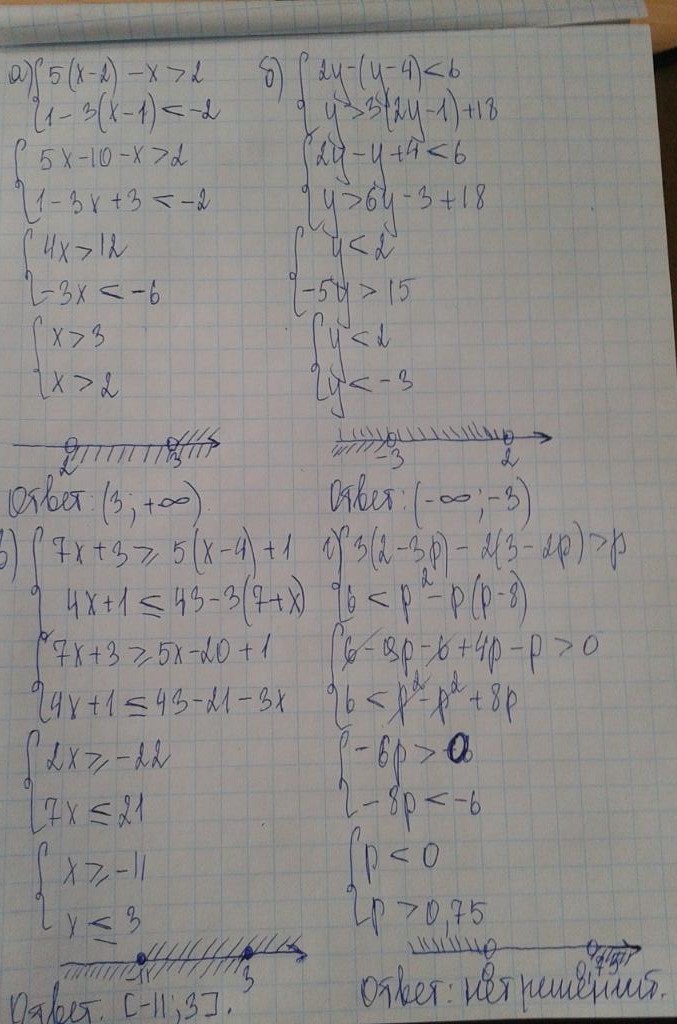 а) { 5(x-2) - x > 2
1 - 3(x-1) < -2
{ 5x - 10 - x > 2
1 - 3x + 3 < -2
{ 4x > 12
-3x < -6
{ x > 3
x > 2
2 3
Ответ: (3; +∞)
б) { 2y - (y-4) < 6
y > 3(2y-1) + 18
{ 2y - y + 4 < 6
y > 6y - 3 + 18
{ y < 2
-5y > 15
{ y < 2
y < -3
-3 2
Ответ: (-∞; -3)
в) { 7x + 3 ≥ 5(x-4) + 1
4x + 1 ≤ 43 - 3(7+x)
{ 7x + 3 ≥ 5x - 20 + 1
4x + 1 ≤ 43 - 21 - 3x
{ 2x ≥ -22
7x ≤ 21
{ x ≥ -11
x ≤ 3
-11 3
Ответ. [-11; 3].
г) { 3(2-3p) - 2(3-2p) > p
6 < p² - p(p-8)
{ 6 - 9p - 6 + 4p - p > 0
6 < p² - p² + 8p
{ -6p > 0
-8p < -6
{ p < 0
p > 0,75
0 0,75
Ответ: нет решений.